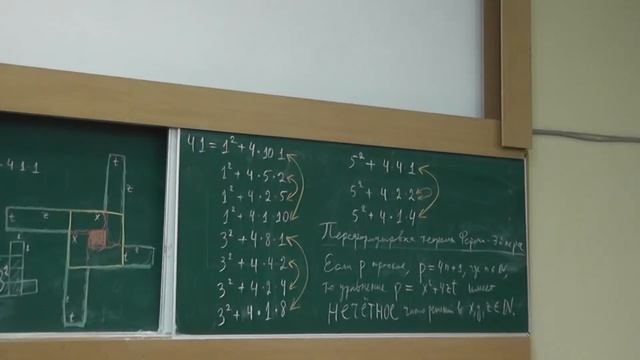 41 = 1² + 4·10·1
1² + 4·5·2
1² + 4·2·5
1² + 4·1·10
3² + 4·8·1
3² + 4·4·2
3² + 4·2·4
3² + 4·1·8
5² + 4·4·1
5² + 4·2·2
5² + 4·1·4
Переформулировка теоремы Ферма-Эйлера
Если p простое, p = 4n+1, где n∈ℕ
то уравнение p = x² + 4zt имеет
НЕЧЁТНОЕ число решений в x, z∈ℕ.
·4·1·1
t
z
t
z
x
x
z
t
t